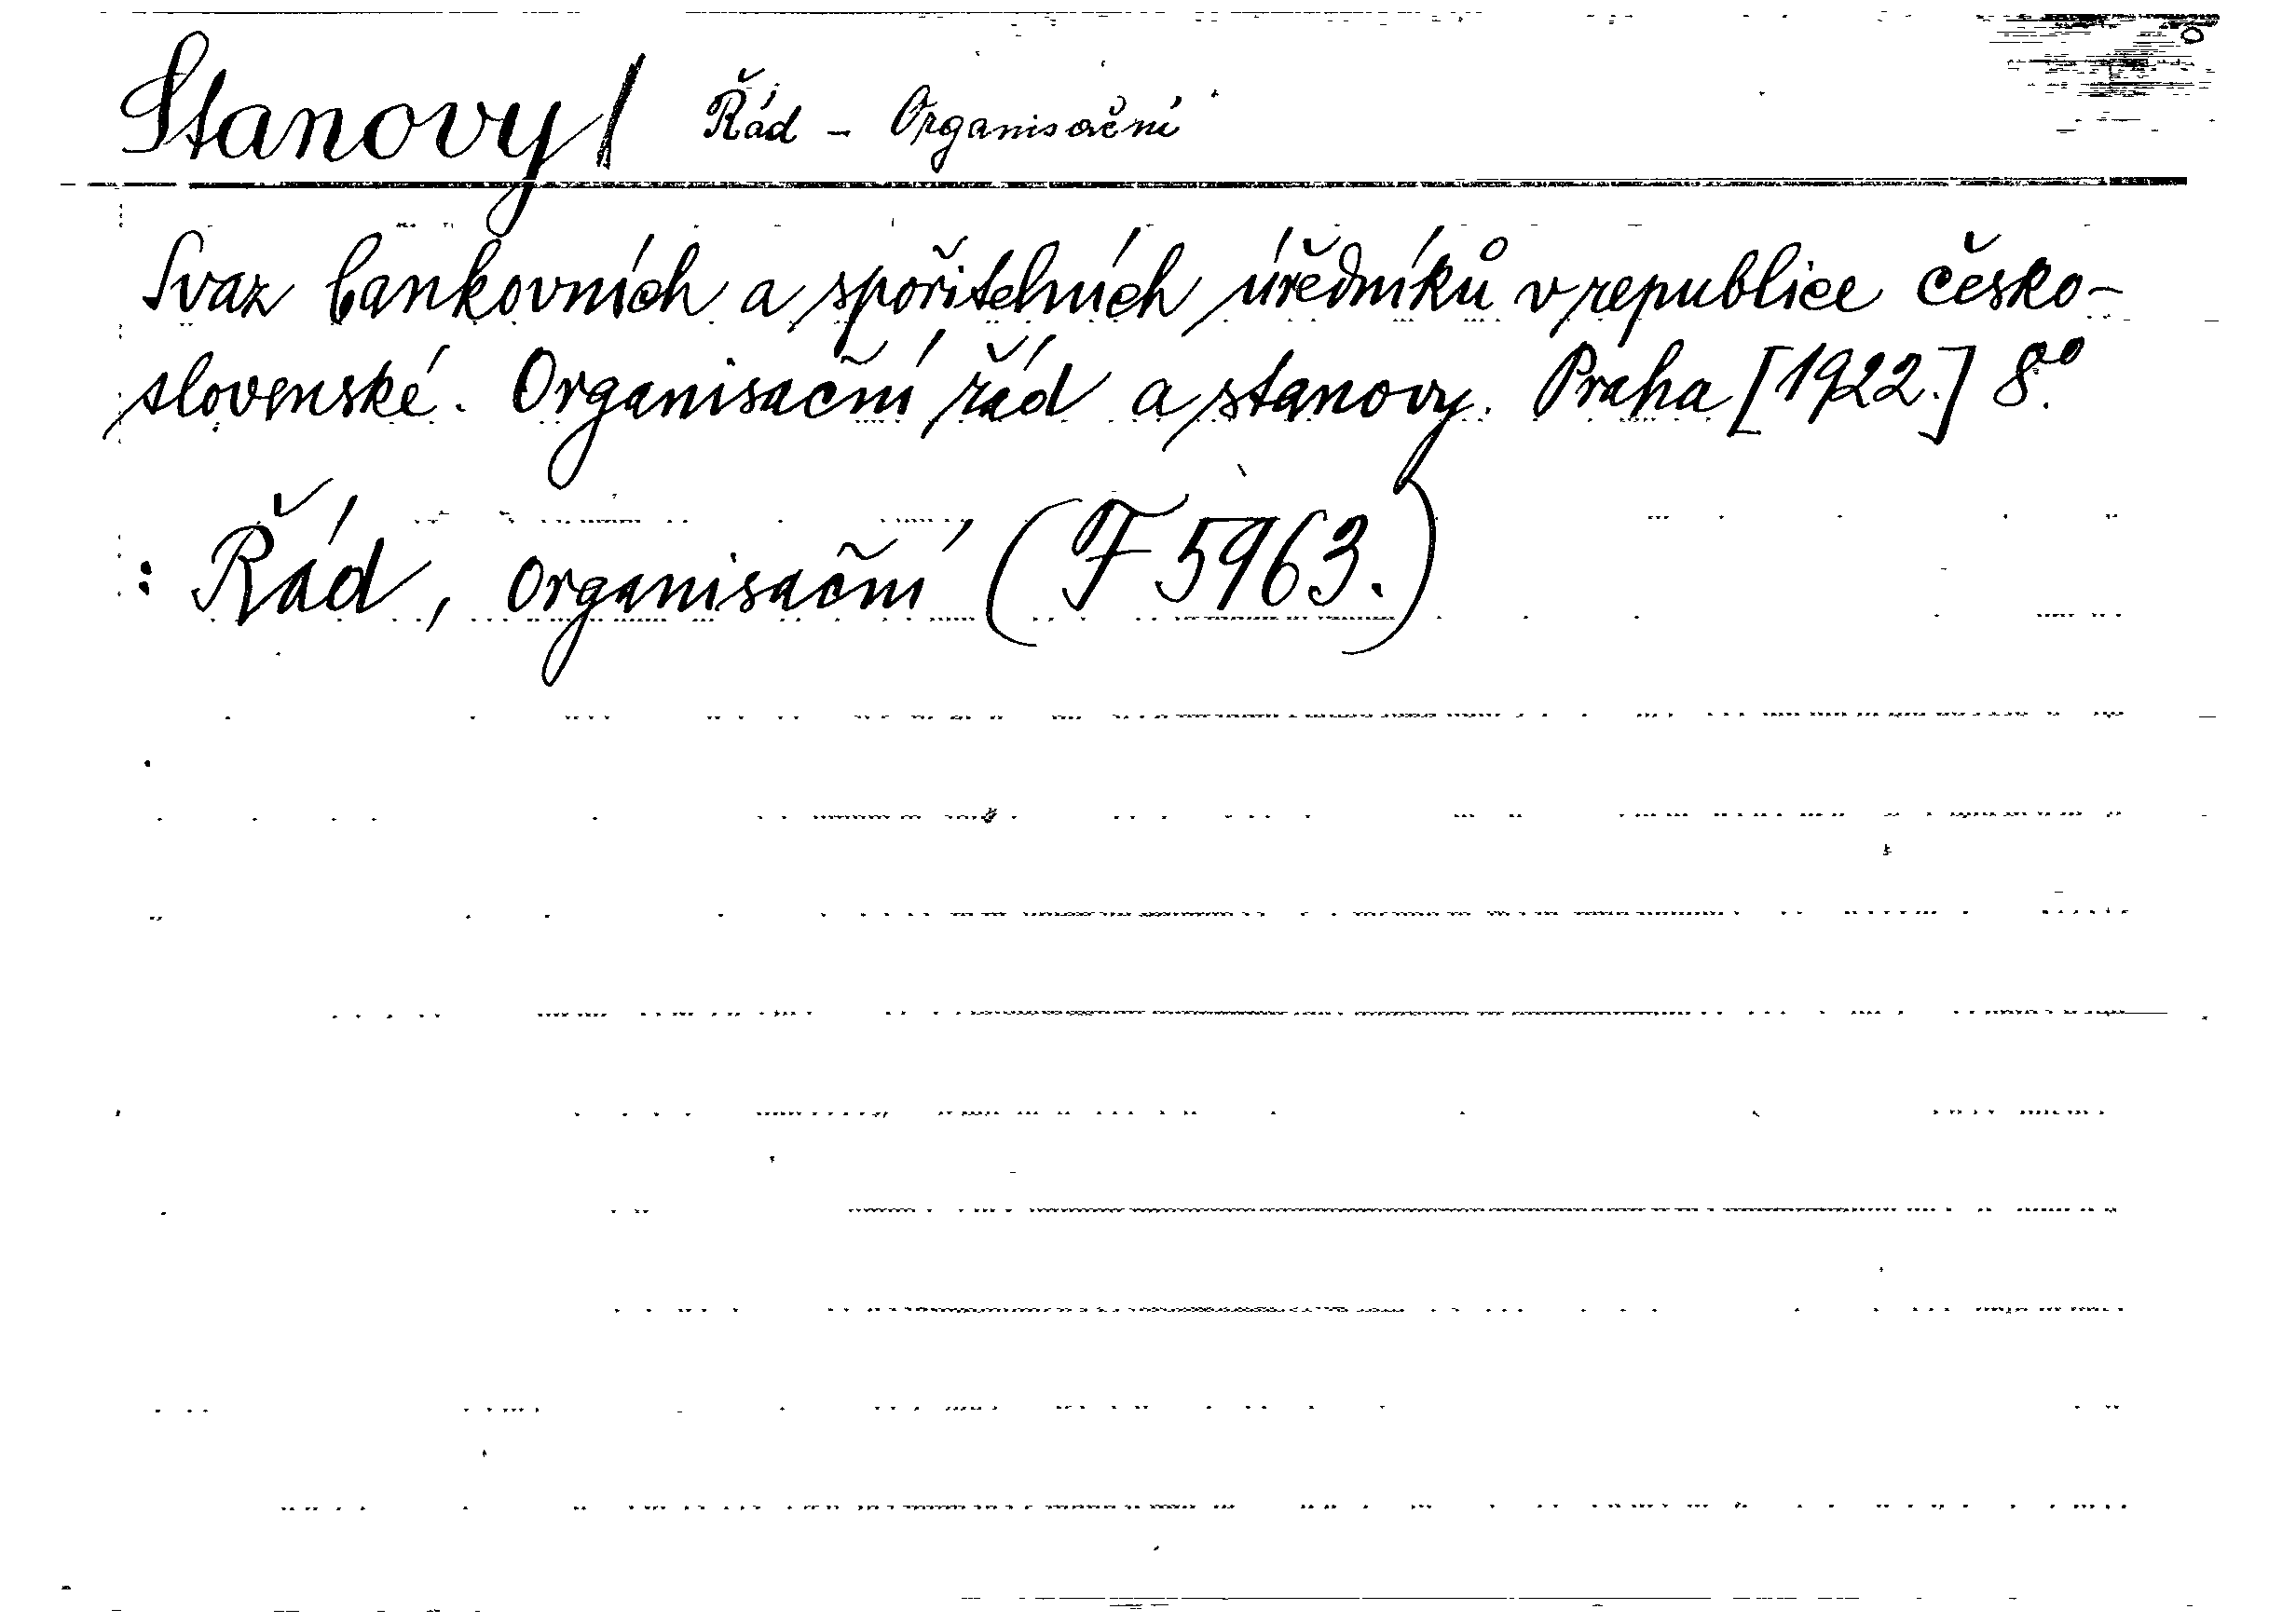 Stanovy / Řád - Organisační
Svaz bankovních a spořitelních úředníků v republice česko-
slovenské. Organisační řád a stanovy. Praha [1922.] 8º.
: Řád, organisační (F 5963.)